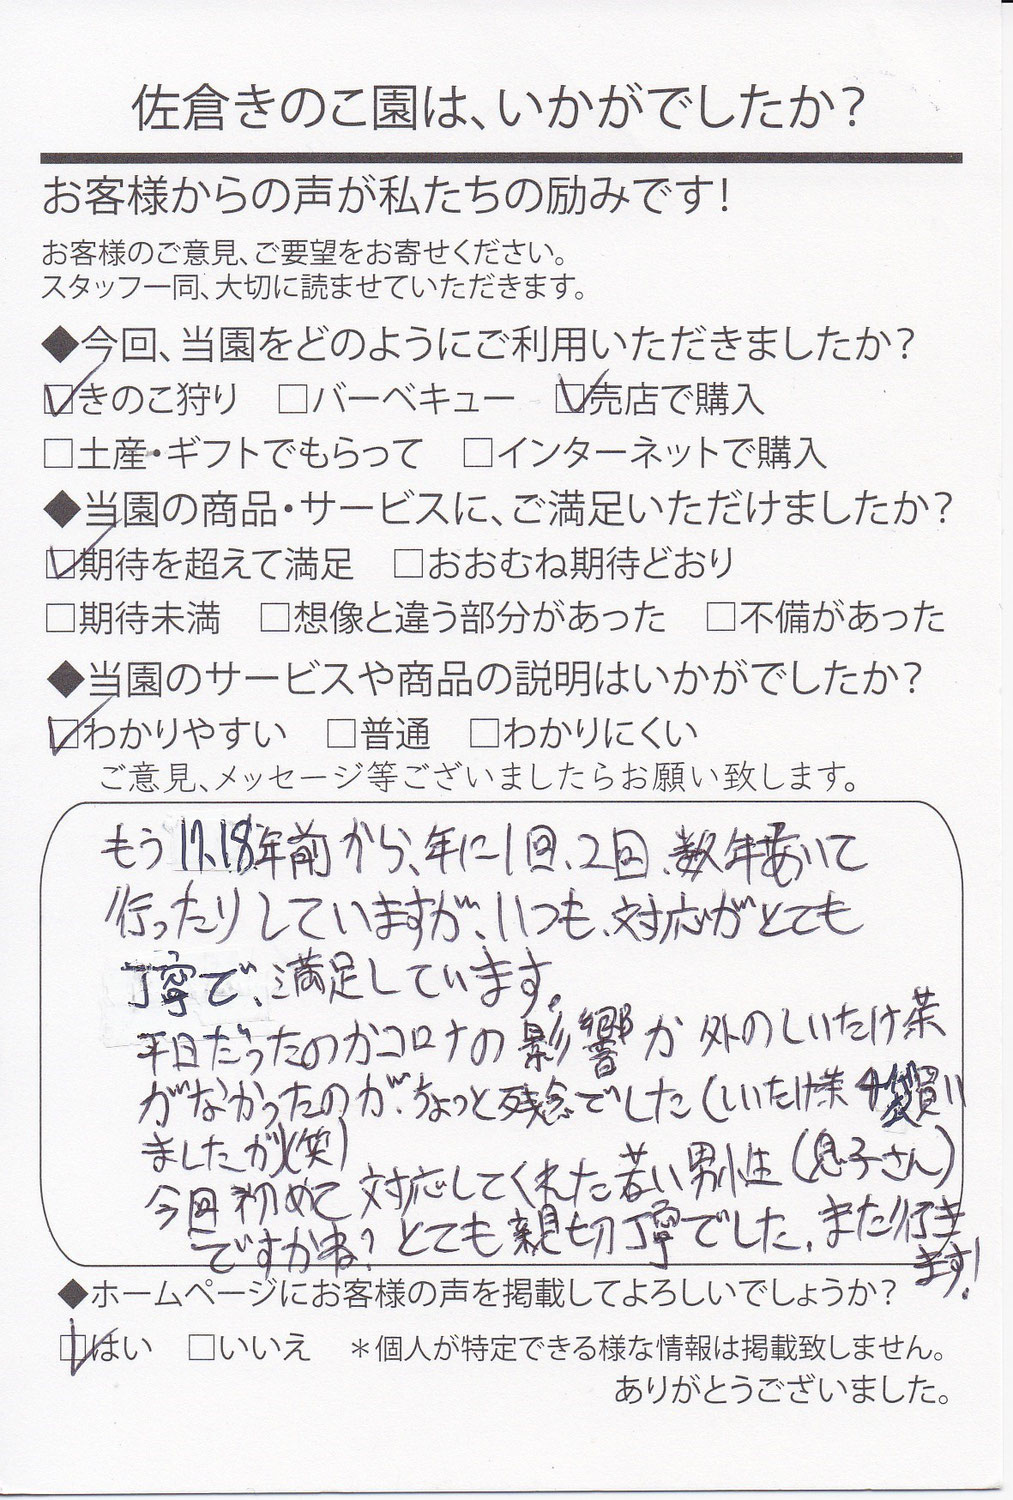 佐倉きのこ園は、いかがでしたか?
お客様からの声が私たちの励みです!
お客様のご意見、ご要望をお寄せください。
スタッフ一同、大切に読ませていただきます。
◆今回、当園をどのようにご利用いただきましたか?
☑きのこ狩り □バーベキュー ☑売店で購入
□土産・ギフトでもらって □インターネットで購入
◆当園の商品・サービスに、ご満足いただけましたか?
☑期待を超えて満足 □おおむね期待どおり
□期待未満 □想像と違う部分があった □不備があった
◆当園のサービスや商品の説明はいかがでしたか?
☑わかりやすい □普通 □わかりにくい
ご意見、メッセージ等ございましたらお願い致します。
もう17、18年前から、年に1回、2回、数年あいて
行ったりしていますが、いつも、対応がとても
丁寧で、満足しています。
平日だったのかコロナの影響か外のしいたけ茶
がなかったのが、ちょっと残念でした(しいたけ茶4袋買い
ましたが)(笑)
今回初めて対応してくれた若い男性(息子さん)
ですかね?とても親切丁寧でした。また行き
ます!
◆ホームページにお客様の声を掲載してよろしいでしょうか?
☑はい □いいえ *個人が特定できる様な情報は掲載致しません。
ありがとうございました。